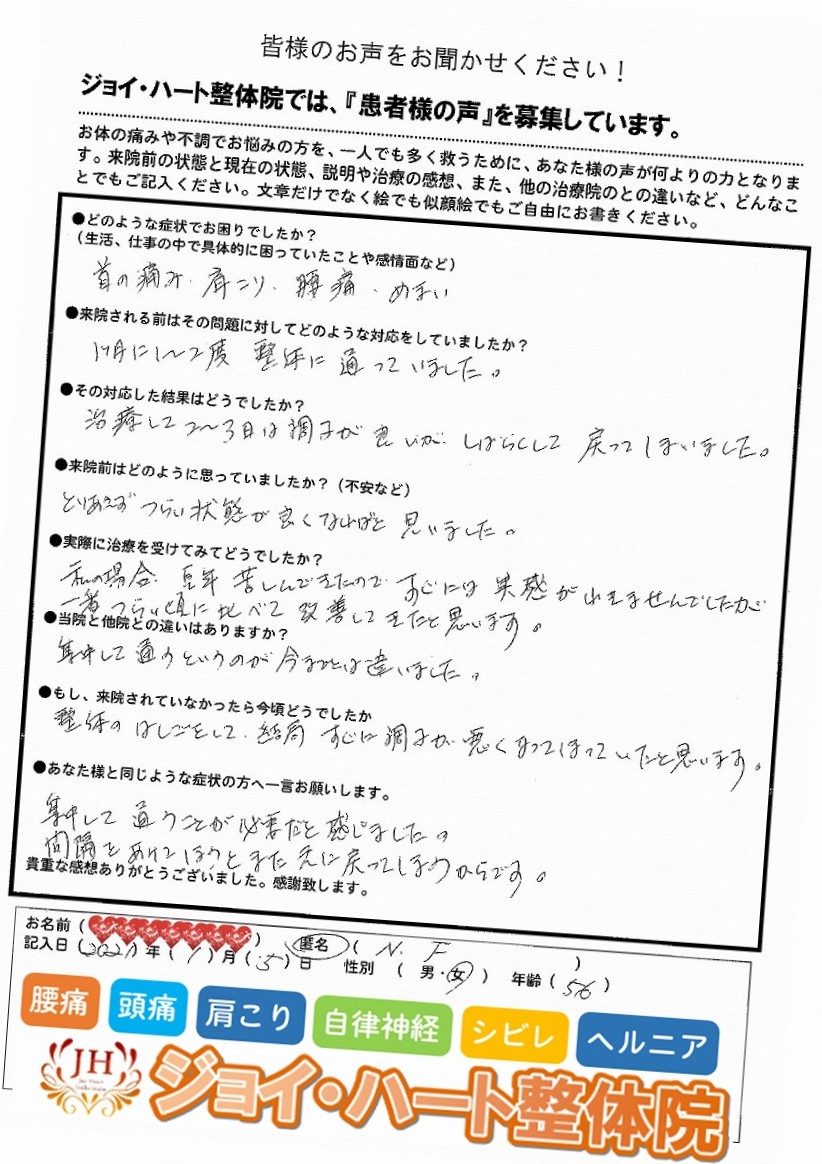 皆様のお声をお聞かせください！
ジョイ・ハート整体院では、『患者様の声』を募集しています。
お体の痛みや不調でお悩みの方を、一人でも多く救うために、あなた様の声が何よりの力となりま
す。来院前の状態と現在の状態、説明や治療の感想、また、他の治療院のとの違いなど、どんなこ
とでもご記入ください。文章だけでなく絵でも似顔絵でもご自由にお書きください。
●どのような症状でお困りでしたか？
（生活、仕事の中で具体的に困っていたことや感情面など）
首の痛み・肩こり・腰痛・めまい
●来院される前はその問題に対してどのような対応をしていましたか？
1ヶ月に1〜2度 整体に通っていました。
●その対応した結果はどうでしたか？
治療して2〜3日は調子が良いが、しばらくして戻ってしまいました。
●来院前はどのように思っていましたか？（不安など）
とりあえずつらい状態が良くなればと思いました。
●実際に治療を受けてみてどうでしたか？
私の場合、長年苦しんできたので、すぐには実感が出ませんでしたが
一番つらい頃に比べて改善してきたと思います。
●当院と他院との違いはありますか？
集中して通うというのが今までとは違いました。
●もし、来院されていなかったら今頃どうでしたか
整体のはしごをして、結局すぐに調子が悪くなってしまっていたと思います。
●あなた様と同じような症状の方へ一言お願いします。
集中して通うことが必要だと感じました。
間隔をあけてしまうとまた元に戻ってしまうからです。
貴重な感想ありがとうございました。感謝致します。
お名前（ ） 匿名（ N. F ）
記入日（2021）年（1）月（5）日 性別（男・女） 年齢（56）
腰痛 頭痛 肩こり 自律神経 シビレ ヘルニア
JH
ジョイ・ハート整体院